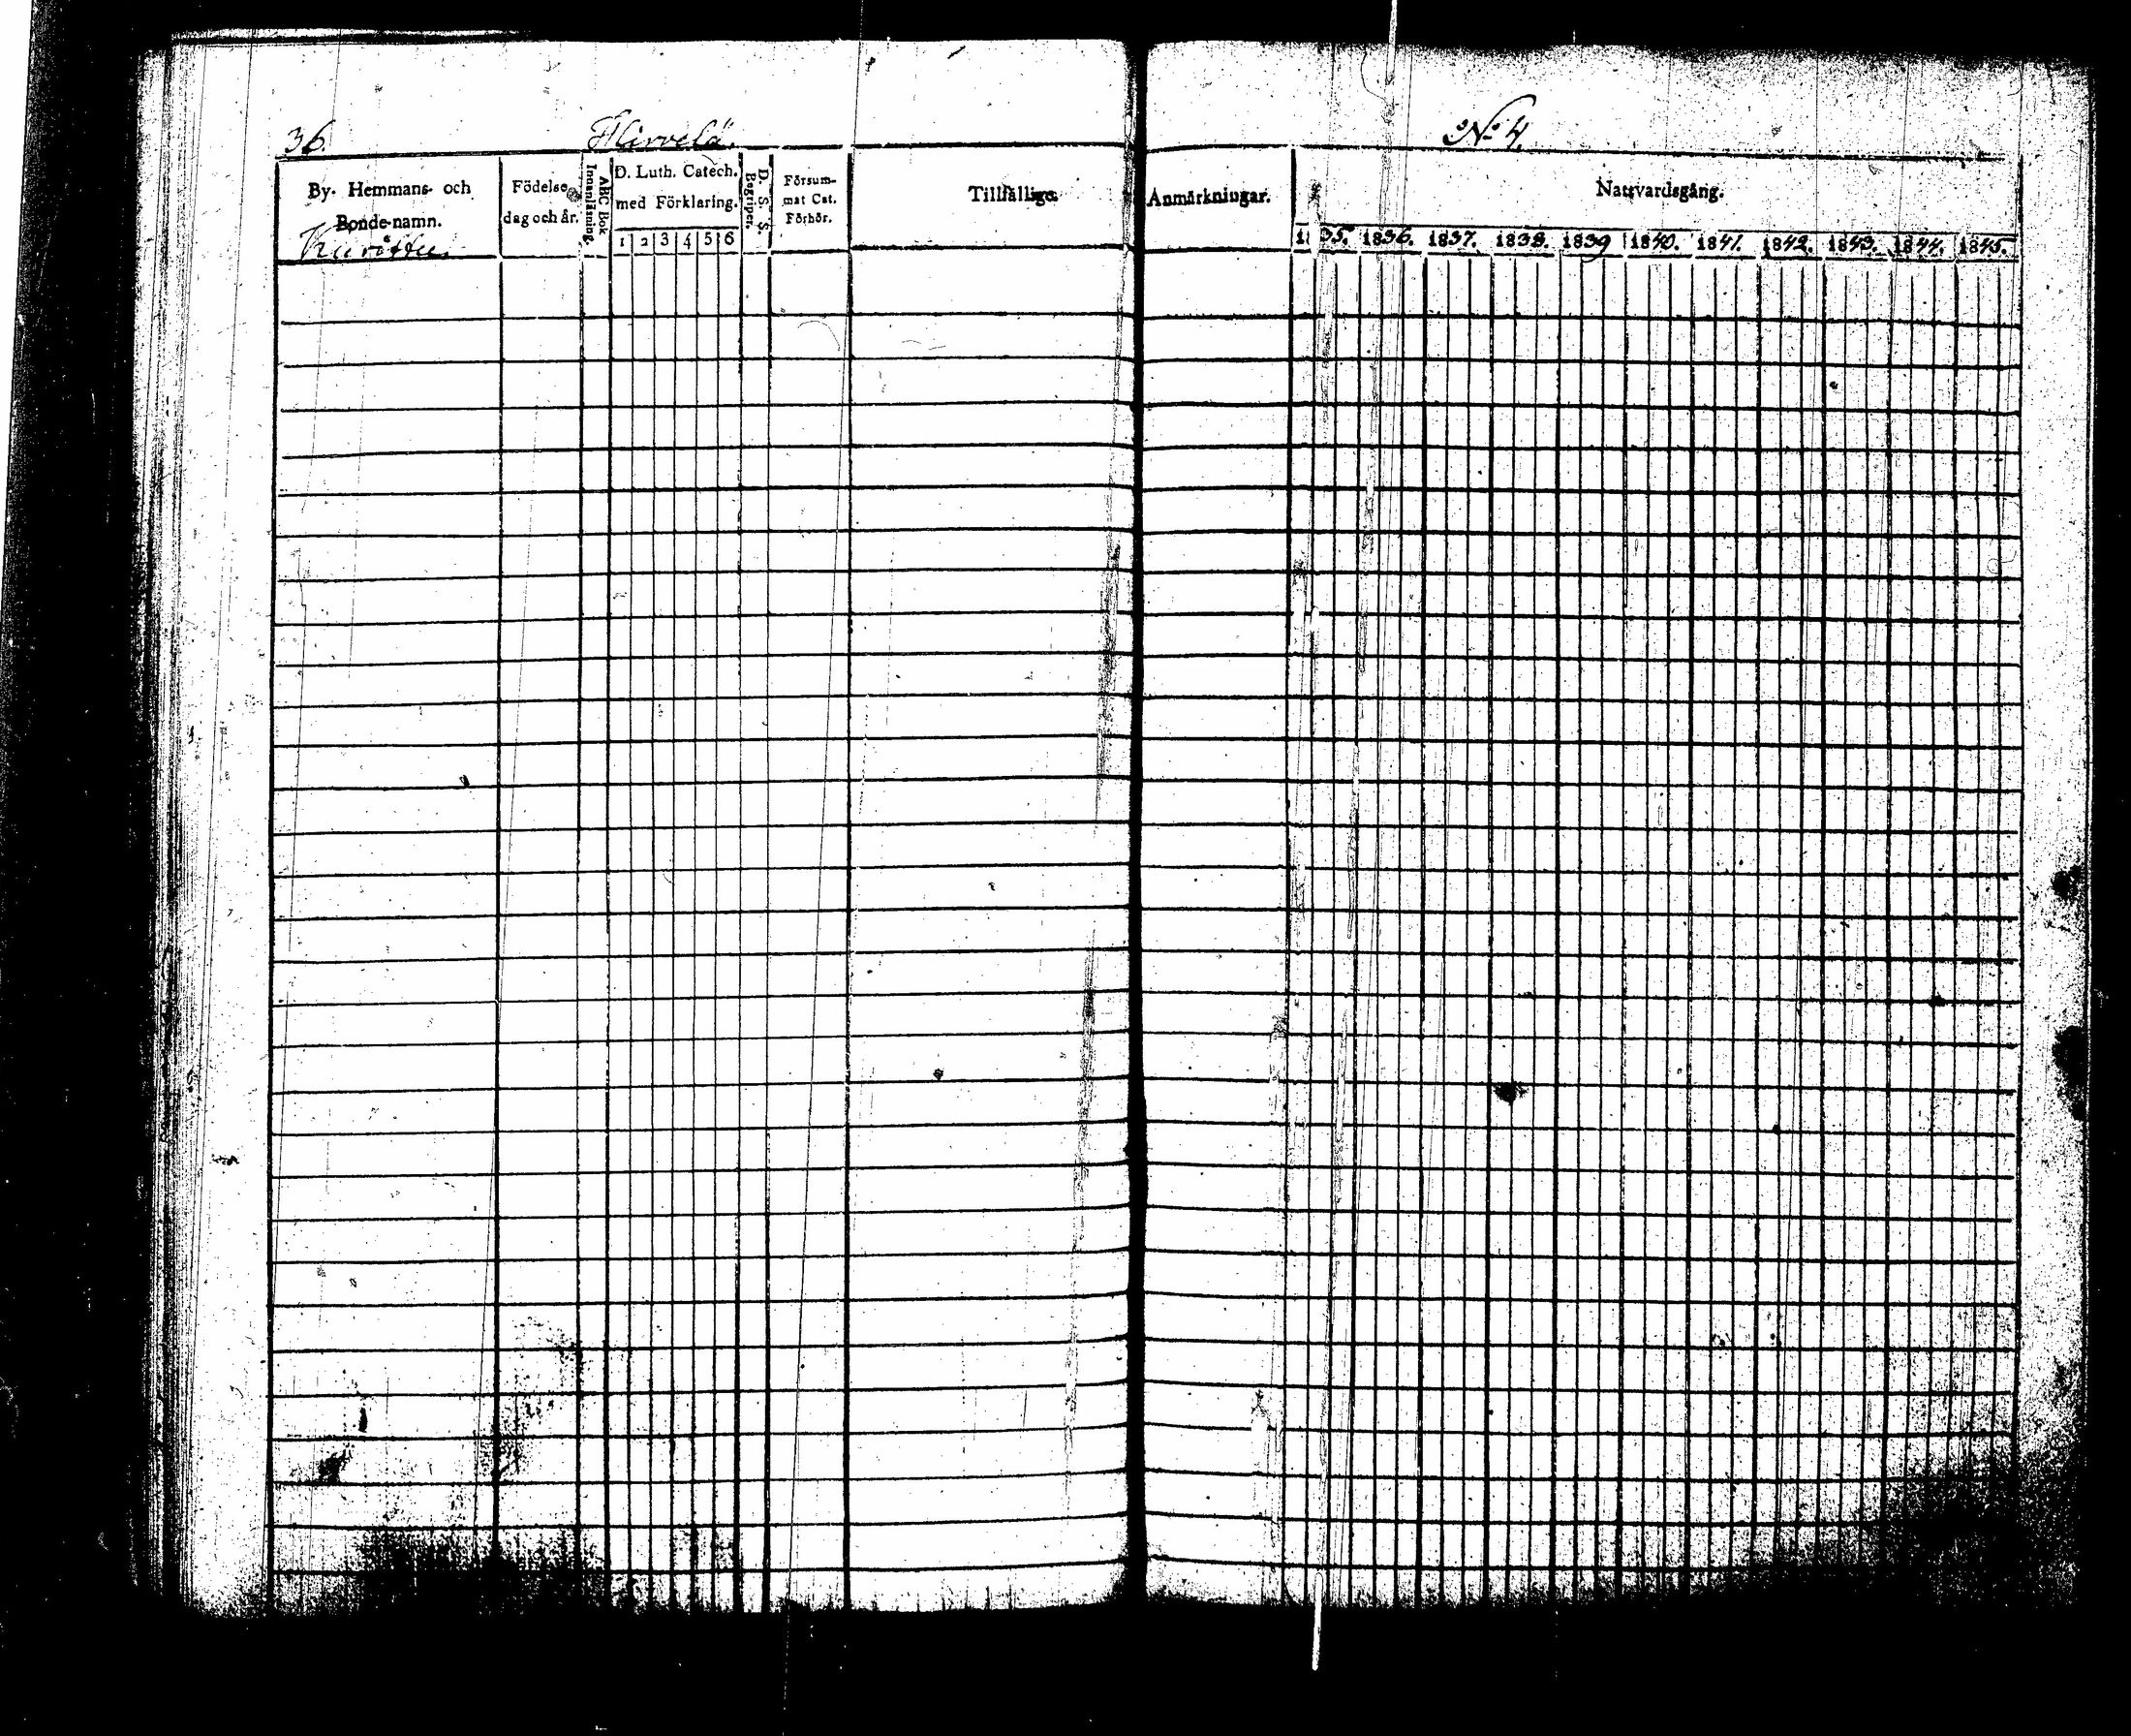 36. Hirvelä. No 4.
By- Hemmans- och
Bonde-namn.
Födelse
dag och år.
ABC Bok
Innanläsning.
D. Luth. Catech.
med Förklaring.
1 2 3 4 5 6
D. S. S.
Begriper.
Försum-
mat Cat.
Förhör.
Tillfällige.
Anmärkningar.
Nattvardsgång.
1835. 1836. 1837. 1838. 1839 1840. 1841. 1842. 1843. 1844. 1845.